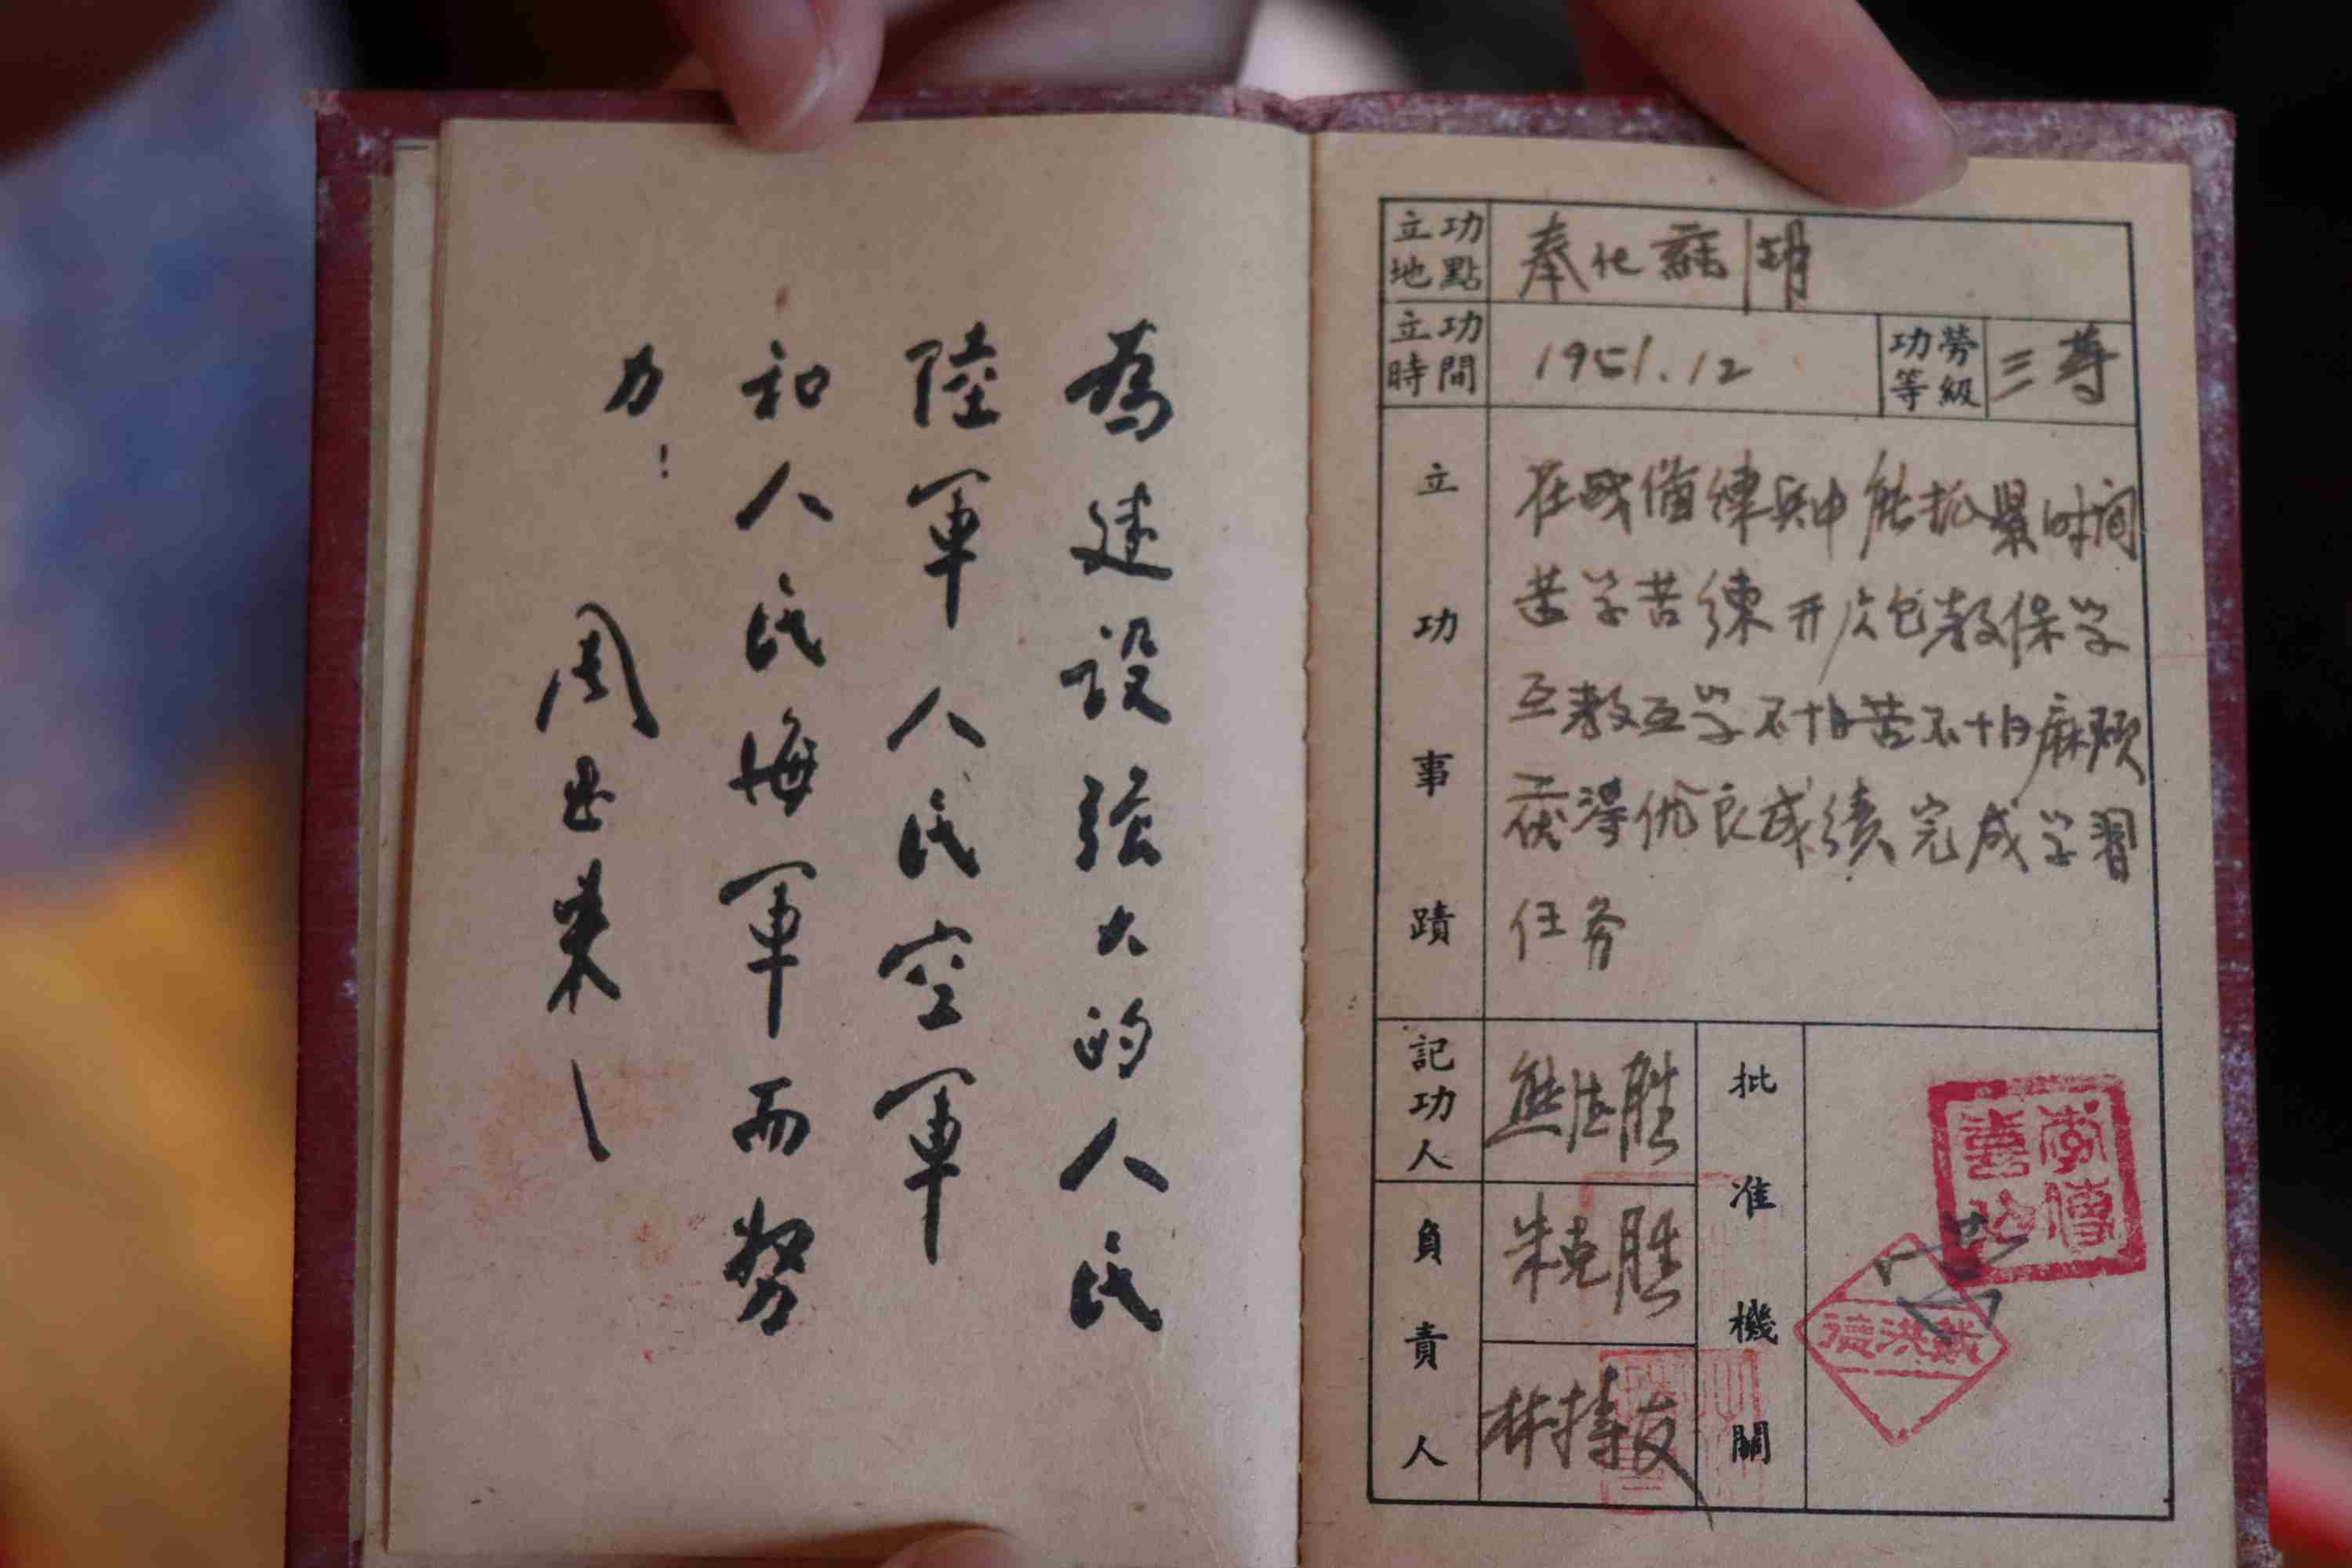 為建設強大的人民
陸軍人民空軍
和人民海軍而努
力!
周恩來
立功地點
奉化
立功時間
1951.12
功勞等級
三等
立功事蹟
在战备练兵中能抓紧时间
苦学苦练开展包教保学
互教互学不怕苦不怕麻烦
获得优良成绩完成学習
任务
記功人
熊德胜
負責人
朱克胜
林持友
批准機關
李傳
戴洪德